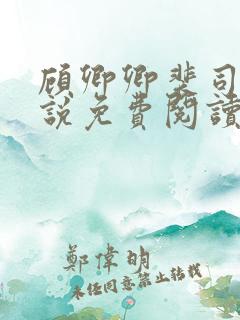 顾卿卿裴司
說免費閱讀
鄭偉明
未经同意禁止转载